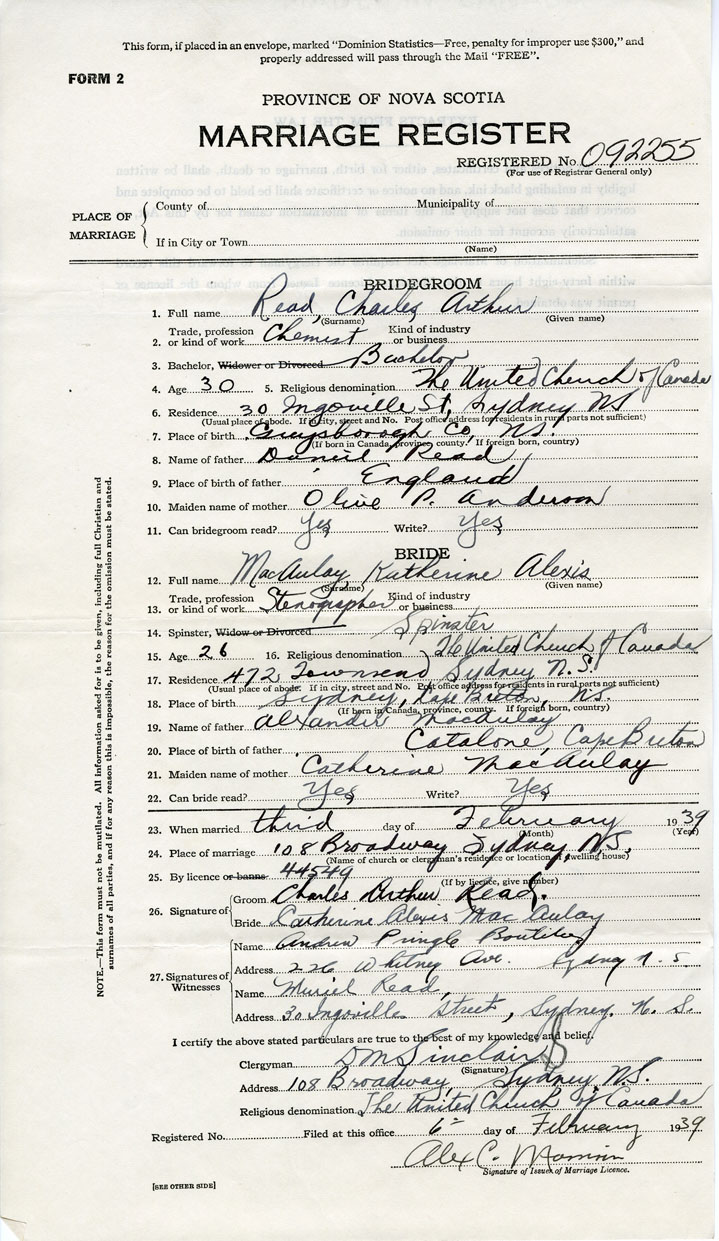 This form, if placed in an envelope, marked "Dominion Statistics—Free, penalty for improper use $300," and
properly addressed will pass through the Mail "FREE".
FORM 2
PROVINCE OF NOVA SCOTIA
MARRIAGE REGISTER
REGISTERED No. 092255
(For use of Registrar General only)
PLACE OF MARRIAGE
County of Municipality of
If in City or Town
(Name)
BRIDEGROOM
1. Full name Read, Charles Arthur
(Surname) (Given name)
2. Trade, profession or kind of work Chemist Kind of industry or business
3. Bachelor, Widower or Divorced Bachelor
4. Age 30 5. Religious denomination The United Church of Canada
6. Residence 30 Ingoville St, Sydney NS
(Usual place of abode. If in city, street and No. Post office address for residents in rural parts not sufficient)
7. Place of birth Guysborough Co, NS.
(If born in Canada, province, county. If foreign born, country)
8. Name of father Daniel Read
9. Place of birth of father England
10. Maiden name of mother Olive P. Anderson
11. Can bridegroom read? Yes Write? Yes
BRIDE
12. Full name MacAulay Katherine Alexis
(Surname) (Given name)
13. Trade, profession or kind of work Stenographer Kind of industry or business
14. Spinster, Widow or Divorced Spinster
15. Age 26 16. Religious denomination The United Church of Canada
17. Residence 472 Townsend Sydney N.S.
(Usual place of abode. If in city, street and No. Post office address for residents in rural parts not sufficient)
18. Place of birth Sydney, Cape Breton, NS.
(If born in Canada, province, county. If foreign born, country)
19. Name of father Alexander MacAulay
20. Place of birth of father Catalone, Cape Breton
21. Maiden name of mother Catherine MacAulay
22. Can bride read? Yes Write? Yes
23. When married third day of February 1939
(Month) (Year)
24. Place of marriage 108 Broadway Sydney, NS.
(Name of church or clergyman's residence or location of dwelling house)
25. By licence or banns 44549
(If by licence, give number)
26. Signature of
Groom Charles Arthur Read.
Bride Catherine Alexis MacAulay
27. Signatures of Witnesses
Name Andrew Pringle
Address 226 Whitney Ave. Sydney N.S.
Name Muriel Read,
Address 30 Ingoville Street, Sydney. N.S.
I certify the above stated particulars are true to the best of my knowledge and belief.
Clergyman DM Sinclair
(Signature)
Address 108 Broadway, Sydney, N.S.
Religious denomination The United Church of Canada
Registered No. Filed at this office 6th day of February 1939
Alex C.
Signature of Issuer of Marriage Licence.
[SEE OTHER SIDE]
NOTE.—This form must not be mutilated. All information asked for is to be given, including full Christian and
surnames of all parties, and if for any reason this is impossible, the reason for the omission must be stated.